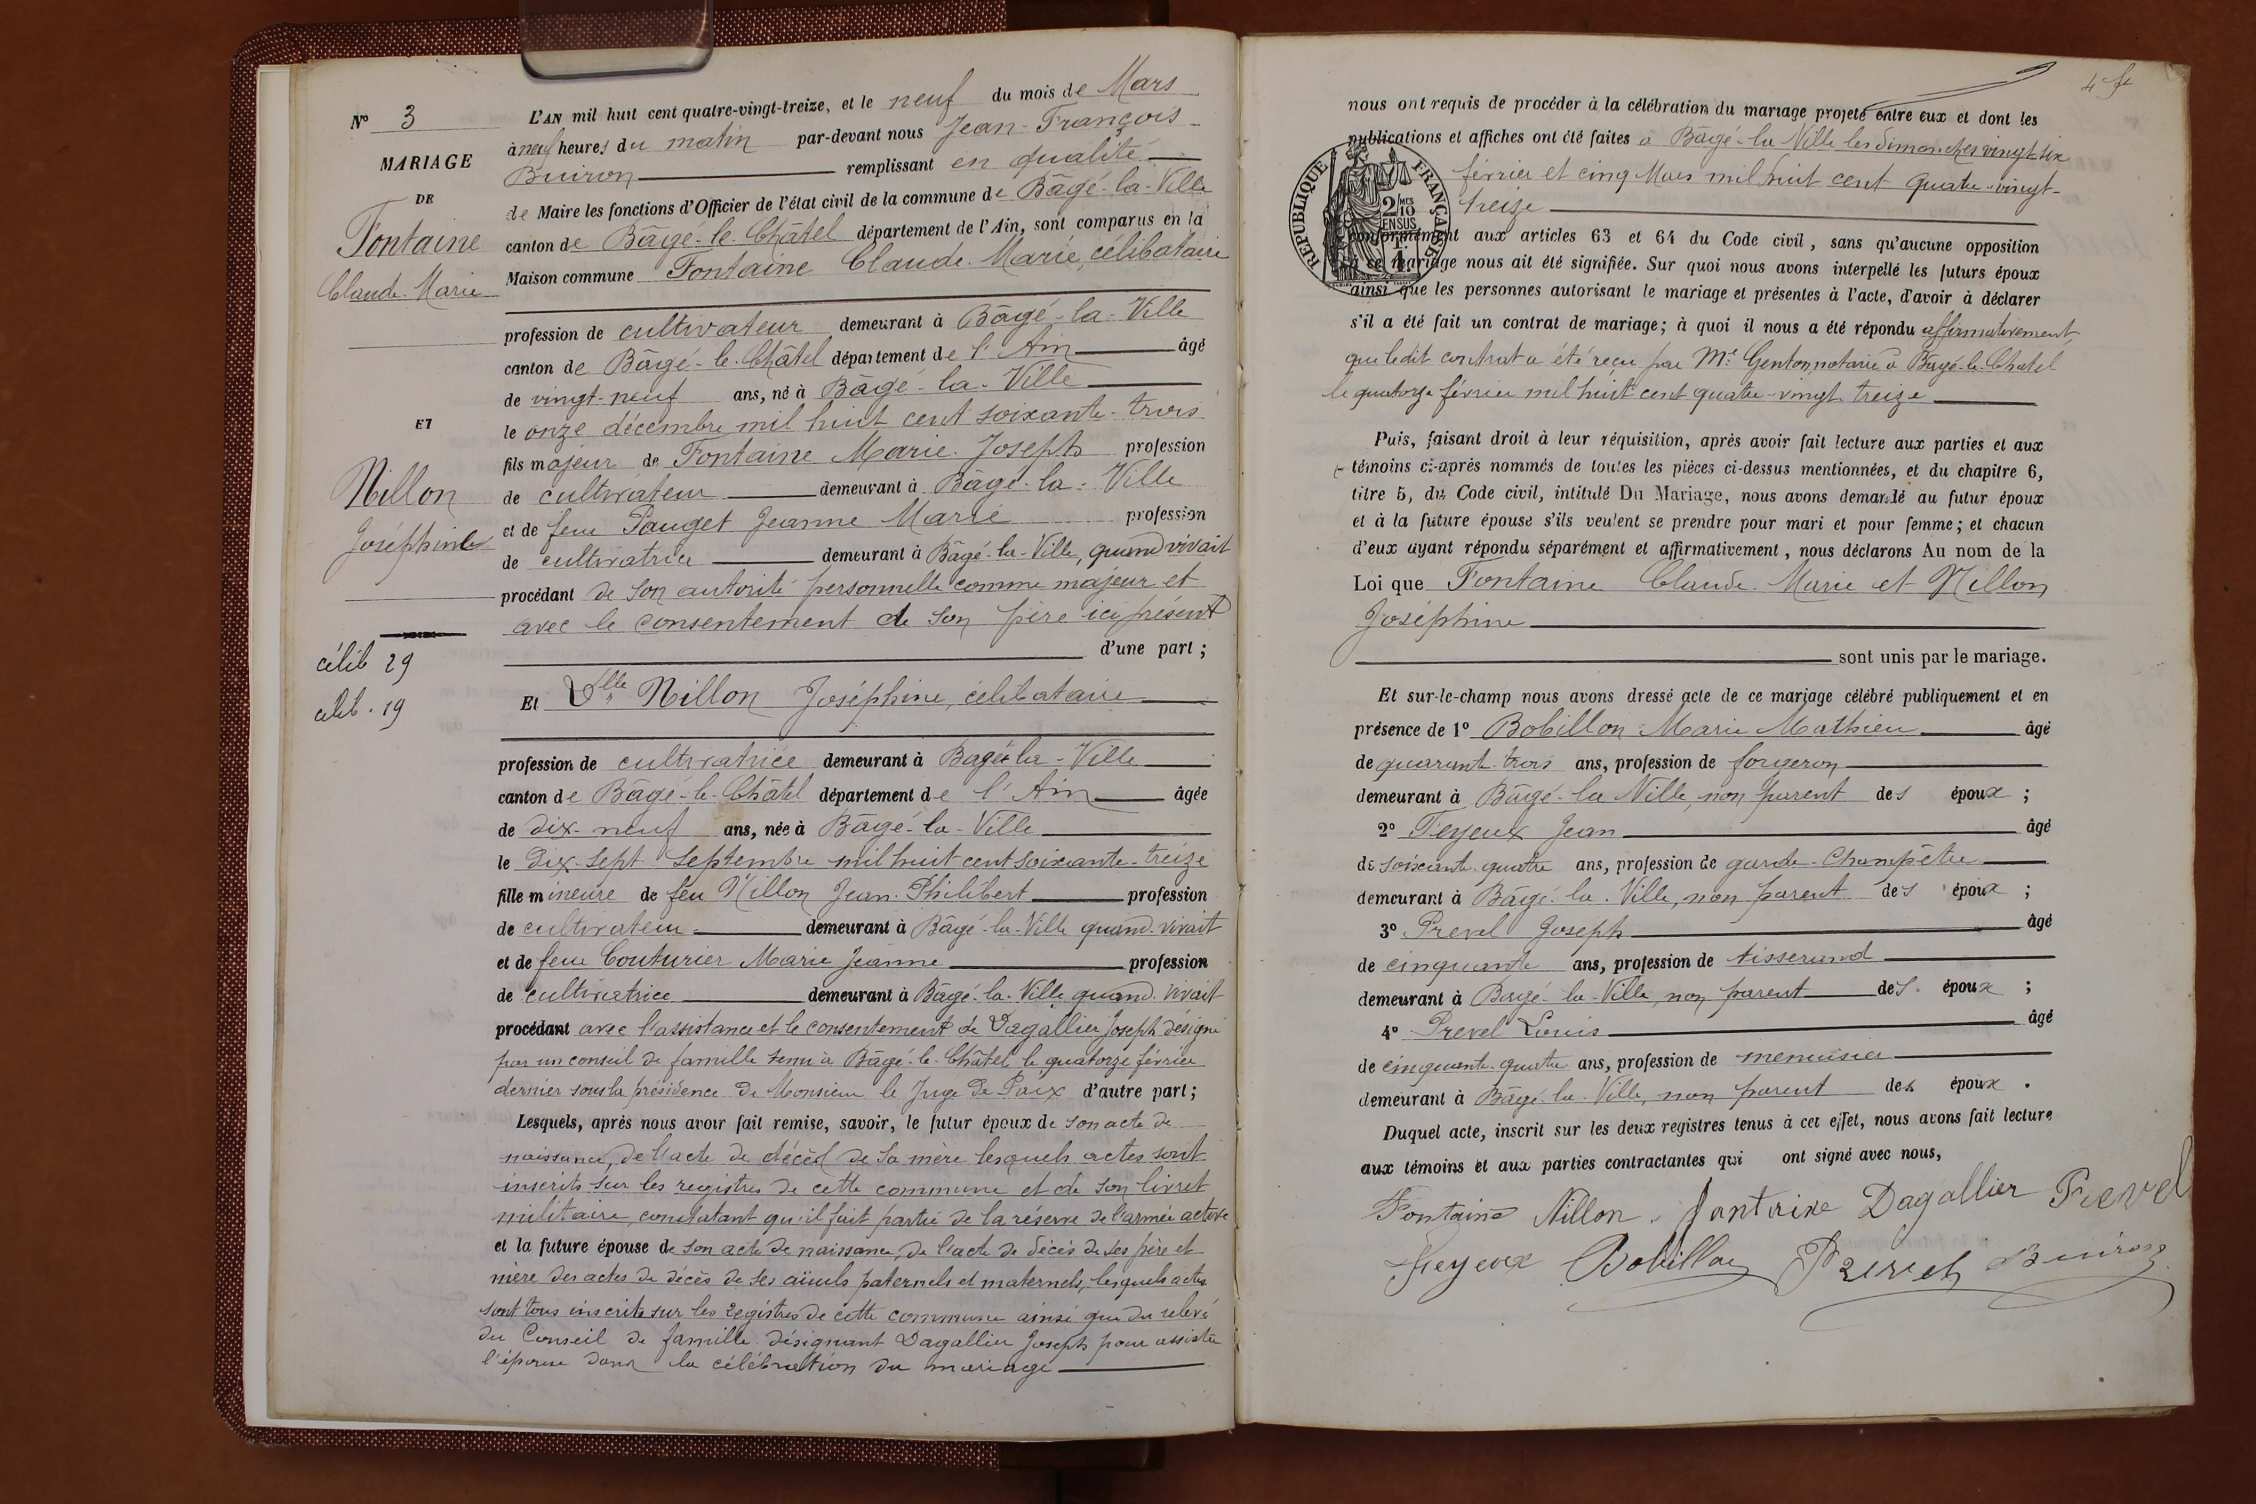 N° 3
MARIAGE
DE
Fontaine
Claude-Marie
ET
Nillon
Joséphine
célib 29
célib. 19
L'AN mil huit cent quatre-vingt-treize, et le neuf du mois de Mars
à neuf heures du matin par-devant nous Jean-François
Buiron remplissant en qualité
de Maire les fonctions d'Officier de l'état civil de la commune de Bâgé-la-Ville
canton de Bâgé-le-Châtel département de l'Ain, sont comparus en la
Maison commune Fontaine Claude-Marie, célibataire
profession de cultivateur demeurant à Bâgé-la-Ville
canton de Bâgé-le-Châtel département de l'Ain âgé
de vingt-neuf ans, né à Bâgé-la-Ville
le onze décembre mil huit cent soixante-trois
fils majeur de Fontaine Marie-Joseph profession
de cultivateur demeurant à Bâgé-la-Ville
et de feue Pauget Jeanne Marie profession
de cultivatrice demeurant à Bâgé-la-Ville, quand vivait
procédant de son autorité personnelle comme majeur et
avec le consentement de son père ici présent
d'une part ;
Et Dlle Nillon Joséphine, célibataire
profession de cultivatrice demeurant à Bagé-la-Ville
canton de Bâgé-le-Châtel département de l'Ain âgée
de dix-neuf ans, née à Bâgé-la-Ville
le dix-sept septembre mil huit cent soixante-treize
fille mineure de feu Nillon Jean-Philibert profession
de cultivateur demeurant à Bâgé-la-Ville quand vivait
et de feue Couturier Marie Jeanne profession
de cultivatrice demeurant à Bâgé-la-Ville quand vivait
procédant avec l'assistance et le consentement de Dagallier Joseph désigné
par un conseil de famille tenu à Bâgé-le-Châtel le quatorze février
dernier sous la présidence de Monsieur le Juge de Paix d'autre part ;
Lesquels, après nous avoir fait remise, savoir, le futur époux de son acte de
naissance, de l'acte de décès de sa mère lesquels actes sont
inscrits sur les registres de cette commune et de son livret
militaire, constatant qu'il fait partie de la réserve de l'armée active
et la future épouse de son acte de naissance, de l'acte de décès de ses père et
mère des actes de décès de ses aïeuls paternels et maternels, lesquels actes
sont tous inscrits sur les registres de cette commune ainsi que du relevé
du Conseil de famille désignant Dagallier Joseph pour assister
l'épouse dans la célébration du mariage
nous ont requis de procéder à la célébration du mariage projeté entre eux et dont les
publications et affiches ont été faites à Bâgé-la-Ville les dimanches vingt-six
février et cinq Mars mil huit cent quatre-vingt-
treize
RÉPUBLIQUE FRANÇAISE
2/10 EN SUS
conformément aux articles 63 et 64 du Code civil, sans qu'aucune opposition
à ce mariage nous ait été signifiée. Sur quoi nous avons interpellé les futurs époux
ainsi que les personnes autorisant le mariage et présentes à l'acte, d'avoir à déclarer
s'il a été fait un contrat de mariage ; à quoi il nous a été répondu affirmativement,
que ledit contrat a été reçu par Me Genton notaire à Bâgé-le-Chatel
le quatorze février mil huit cent quatre-vingt treize
Puis, faisant droit à leur réquisition, après avoir fait lecture aux parties et aux
témoins ci-après nommés de toutes les pièces ci-dessus mentionnées, et du chapitre 6,
titre 5, du Code civil, intitulé Du Mariage, nous avons demandé au futur époux
et à la future épouse s'ils veulent se prendre pour mari et pour femme ; et chacun
d'eux ayant répondu séparément et affirmativement, nous déclarons Au nom de la
Loi que Fontaine Claude-Marie et Nillon
Joséphine
sont unis par le mariage.
Et sur-le-champ nous avons dressé acte de ce mariage célébré publiquement et en
présence de 1° Bobillon Marie Mathieu âgé
de quarante-trois ans, profession de forgeron
demeurant à Bâgé-la Ville, non parent des époux ;
2° Feyeux Jean âgé
de soixante-quatre ans, profession de garde-Champêtre
demeurant à Bâgé-la-Ville, non parent des époux ;
3° Prevel Joseph âgé
de cinquante ans, profession de tisserand
demeurant à Bagé-la-Ville, non parent des époux ;
4° Prevel Louis âgé
de cinquante-quatre ans, profession de menuisier
demeurant à Bâgé-la-Ville, non parent des époux.
Duquel acte, inscrit sur les deux registres tenus à cet effet, nous avons fait lecture
aux témoins et aux parties contractantes qui ont signé avec nous,
Fontaine Nillon Fontaine Dagallier Prevel
Feyeux Bobillon Prevel Buiron